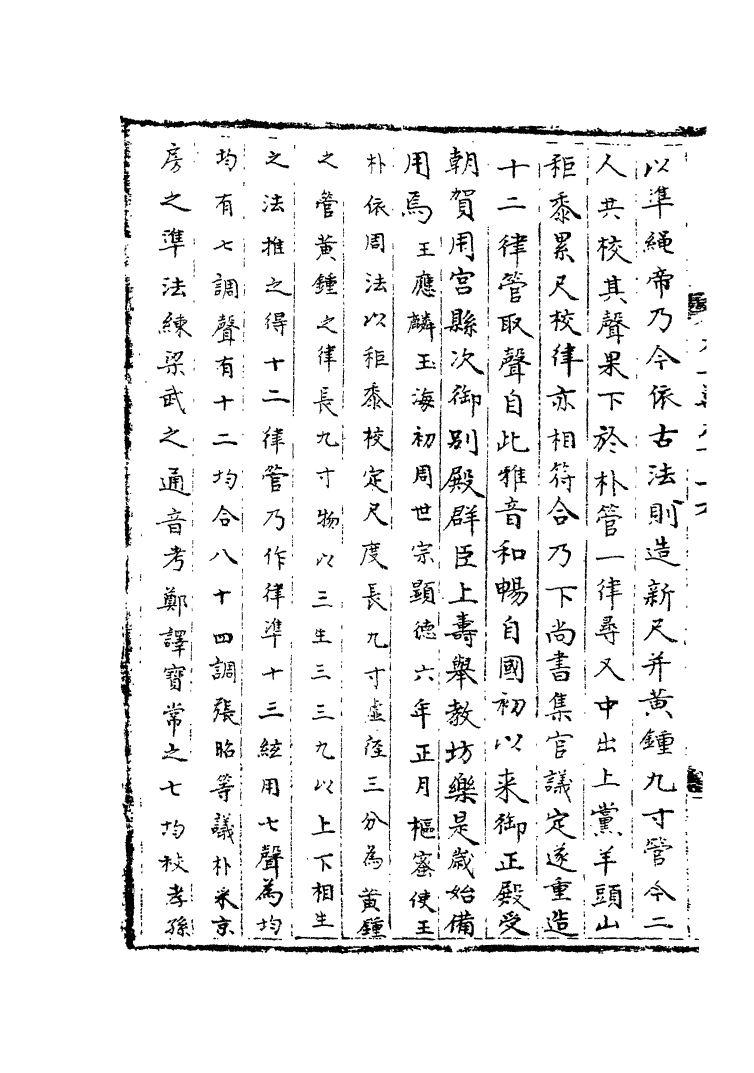 以準繩帝乃令依古法則造新尺并黃鍾九寸管令二
人共校其聲果下於朴管一律尋又中出上黨羊頭山
秬黍累尺校律亦相符合乃下尚書集官議定遂重造
十二律管取聲自此雅音和暢自國初以来御正殿受
朝賀用宫縣次御別殿群臣上壽舉教坊樂是歲始備
用焉王應麟玉海初周世宗顯徳六年正月樞密使王
朴依周法以秬黍校定尺度長九寸虛徑三分為黃鍾
之管黃鍾之律長九寸物以三生三三九以上下相生
之法推之得十二律管乃作律準十三絃用七聲為均
均有七調聲有十二均合八十四調張昭等議朴采京
房之準法練梁武之通音考鄭譯寳常之七均校孝孫